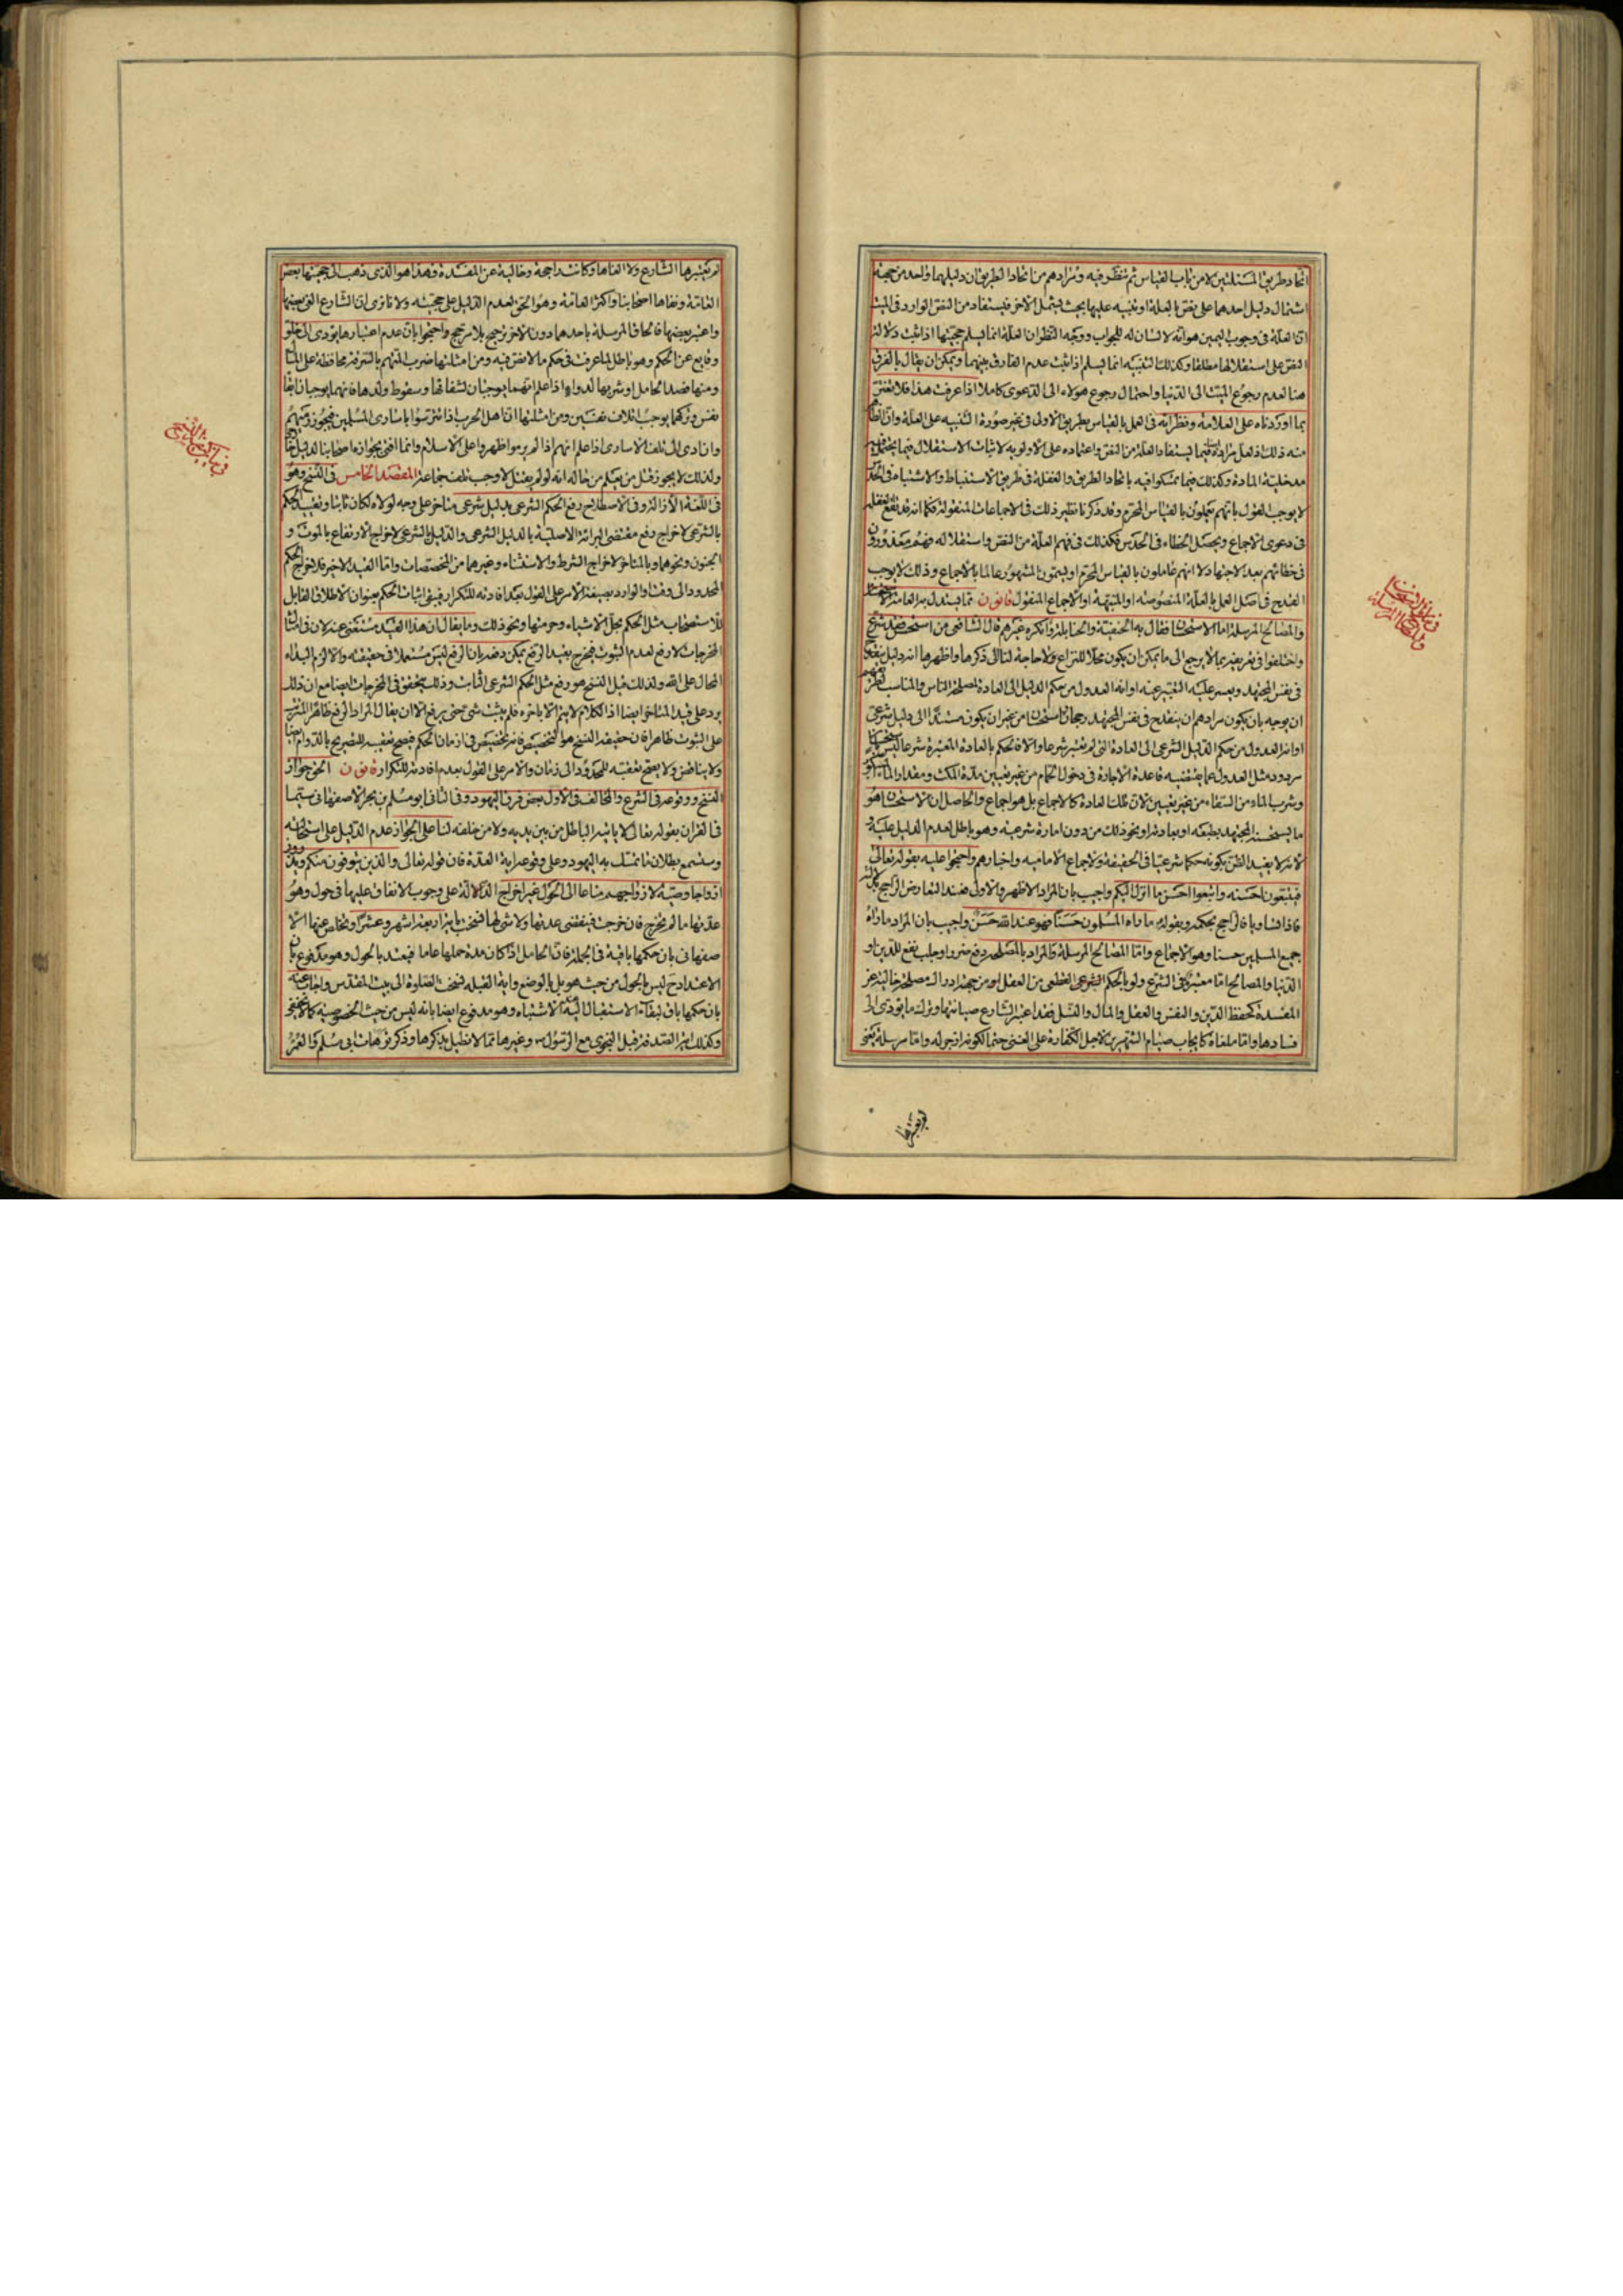 اتحاد طريق المسئلتين لا من باب القياس ثم تنظر فيه ومرادهم من اتحاد الطريق ان دليلهما واحد من جهة
اشتمال دليل احدهما على نص بالعلة او تنبيه عليها بحيث يشمل الاخر فيستفاد من النص الوارد في الميت
ان العلة في وجوب اليمين هو انه لا لسان له للجواب ووجه النظر ان العلة انما يسلم حجيتها اذا ثبت دلالة
النص على استقلالها مطلقا وكذلك التنبيه انما يسلم اذا ثبت عدم الفارق بينهما ويمكن ان يقال بالفرق
هنا لعدم رجوع الميت الى الدنيا واحتمال رجوع هؤلاء الى الدعوى كاملا اذا عرفت هذا فلا تغتر
بما اوردناه على العلامة ونظرائه في العمل بالقياس بطريق الاولى في غير صورة التنبيه على العلة وان
منه ذلك فلعل مراده فيما يستفاد العلة من النص واعتماده على الاولوية لاثبات الاستقلال فيما يحتمل فيه
مدخلية المادة وكذلك فيما تمسكوا فيه باتحاد الطريق والغفلة في طريق الاستنباط والاشتباه في الحدس
لا يوجب القول بانهم يعملون بالقياس المحرم وقد ذكرنا نظير ذلك في الاجماعات المنقولة فكما انه قد يقع الغفلة
في دعوى الاجماع ويحصل الخطاء في الحدس فكذلك في فهم العلة من النص واستقلاله فهم معذورون
في خطائهم بعد الاجتهاد لا انهم عاملون بالقياس المحرم او يسمون المشهور عالما بالاجماع وذلك لا يوجب
القدح في اصل العمل بالعلة المنصوصة او المنبهة او الاجماع المنقول قانون مما يستدل به العامة الاستحسان
والمصالح المرسلة اما الاستحسان فقال به الحنفية والحنابلة وانكره غيرهم قال الشافعي من استحسن فقد شرع
واختلفوا في تعريفه بما لا يرجع الى ما يمكن ان يكون محلا للنزاع ولا حاجة لنا الى ذكرها واظهرها انه دليل ينقدح
في نفس المجتهد ويعسر عليه التعبير عنه او انه العدول من حكم الدليل الى العادة لمصلحة الناس والمناسب
ان يوجه بان يكون مرادهم ان ينقدح في نفس المجتهد رجحان استحسان من غير ان يكون مستندا الى دليل شرعي
او انه العدول من حكم الدليل الشرعي الى العادة التي لم تعتبر شرعا والا فالحكم بالعادة المعتبرة شرعا ليس
مردود مثل العدول عما يقتضيه قاعدة الاجارة في دخول الحمام من غير تعيين مدة المكث ومقدار الماء
وشرب الماء من السقاء من غير تعيين لان تلك العادة كالاجماع بل هو اجماع والحاصل ان الاستحسان هو
ما يستحسنه المجتهد بطبعه او بعادته او نحو ذلك من دون امارة شرعية وهو باطل لعدم الدليل عليه و
لانه لا يفيد الظن بكونه حكما شرعيا في الحقيقة ولاجماع الامامية واخبارهم واحتجوا عليه بقوله تعالى
فيتبعون احسنه واتبعوا احسن ما انزل اليكم واجيب بان المراد الاظهر والاولى عند التعارض الراجح
فاذا تساويا فالراجح بحكمه وبقوله ما رآه المسلمون حسنا فهو عند الله حسن واجيب بان المراد ما رآه
جميع المسلمين حسنا وهو الاجماع واما المصالح المرسلة فالمراد بالمصلحة دفع ضرر او جلب نفع للدين او
الدنيا والمصالح اما معتبرة في الشرع ولو بالحكم الشرعي القطعي من العقل او من جهة ادراك مصلحة خالية عن
المفسدة كحفظ الدين والنفس والعقل والمال والنسل فقد اعتبر الشارع صيانتها وترك ما يؤدي الى
فسادها واما ملغاة كايجاب صيام الشهرين لاجل الكفارة على الغني حتما لكونه ازجر له واما مرسلة يعني
في بيان الاستحسان
والمصالح المرسلة
لم يعتبرها
لم يعتبرها الشارع ولا الغاها وكانت راجحة وخالية عن المفسدة وهذا هو الذي ذهب الى حجيتها بعض
العامة ونفاها اصحابنا واكثر العامة وهو الحق لعدم الدليل على حجيته ولانا نرى ان الشارع الغى بعضها
واعتبر بعضها فالحاق المرسلة باحدهما دون الاخر ترجيح بلا مرجح واحتجوا بان عدم اعتبارها يؤدي الى خلو
وقايع عن الحكم وهو باطل لما عرفت في حكم ما لا نص فيه ومن امثلتها ضرب المتهم بالسرقة محافظة على المال
ومنها فصد الحامل او شربها لدواء اذا علم انهما يوجبان لشفائها وسقوط ولدها فانهما يوجبان ابقاء
نفس وتركهما يوجب اتلاف نفسين ومن امثلتها ان اهل الحرب اذا تترسوا باسارى المسلمين فيجوز رميهم
وان ادى الى تلف الاسارى اذا علم انهم اذا لم يرموا ظهروا على الاسلام وانما افتى بجوازه اصحابنا لدليل خارجي
ولذلك لا يجوز قتل من يعلم من حاله انه لو لم يقتل لاوجب تلف جماعة المقصد الخامس في النسخ وهو
في اللغة الازالة وفي الاصطلاح رفع الحكم الشرعي بدليل شرعي متاخر على وجه لولاه لكان ثابتا وتقييد الحكم
بالشرعي لاخراج رفع مقتضى البرائة الاصلية بالدليل الشرعي والدليل بالشرعي لاخراج الارتفاع بالموت و
الجنون ونحوهما وبالمتاخر لاخراج الشرط والاستثناء وغيرهما من المخصصات واما القيد الاخير فلاخراج الحكم
المحدود الى وقت والوارد بصيغة الامر على القول بعد افادته للتكرار فيبقى اثبات الحكم بعنوان الاطلاق القابل
للاستصحاب مثل الحكم بحل الاشياء وحرمتها ونحو ذلك وما يقال ان هذا القيد مستغنى عنه لان في امثال
المخرجات لا رفع لعدم الثبوت فيخرج بقيد الرفع يمكن دفعه بان الرفع ليس مستعملا في حقيقته والا لزم البداء
المحال على الله ولذلك قيل النسخ هو رفع مثل الحكم الشرعي الثابت وذلك يتحقق في المخرجات ايضا مع ان ذلك
يرد على قيد المتاخر ايضا اذ الكلام لا يتم الا باخره فلم يثبت شيء حتى يرفع الا ان يقال المراد الرفع ظاهرا
على الثبوت ظاهرا فان حقيقة النسخ هو التخصيص فانه تخصيص في ازمان الحكم فيصح تعقيبه للتصريح بالدوام ايضا
ولا يناقض ولا يصح تعقيبه للمحدود الى زمان والامر على القول بعدم افادته للتكرار قانون الحق جواز
النسخ ووقوعه في الشرع والمخالف في الاول بعض فرق اليهود وفي الثاني ابو مسلم بن بحر الاصفهاني سيما
في القران بقوله تعالى لا ياتيه الباطل من بين يديه ولا من خلفه لنا على الجواز عدم الدليل على استحالته
وستسمع بطلان ما تمسك به اليهود وعلى وقوعه اية العدة فان قوله تعالى والذين يتوفون منكم ويذرون
ازواجا وصية لازواجهم متاعا الى الحول غير اخراج الدلالة على وجوب الانفاق عليها في حول وهو
عدتها ما لم تخرج فان خرجت فينقضي عدتها ولا شيء لها فنسخت باية اربعة اشهر وعشرا وتخلص عنها الا
صفهاني بان حكمها باقية في الجملة فان الحامل اذا كان مدة حملها عاما فيعتد بالحول وهو مدفوع بان
الاعتداد ح ليس بالحول من حيث هو بل بالوضع واية القبلة نسخت الصلوة الى بيت المقدس واجاب عنه
بان حكمها باق لبقاء الاستقبال اليه عند الاشتباه وهو مدفوع ايضا بانه ليس من حيث الخصوصية كما لا يخفى
وكذلك اية الصدقة قبل النجوى مع الرسول ص وغيرها مما لا نطيل بذكرها وذكر ترهات ابي مسلم والعمر